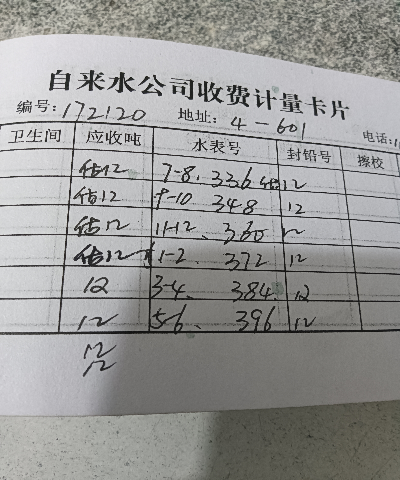 自来水公司收费计量卡片
编号:172120 地址: 4-601 电话:
卫生间 应收吨 水表号 封铅号 擦校
估12 7-8. 336 估12
估12 9-10 348 12
估12 11-12、360 12
估12 1-2. 372 12
12 3-4. 384. 12
12 5-6、 396 12
12
12